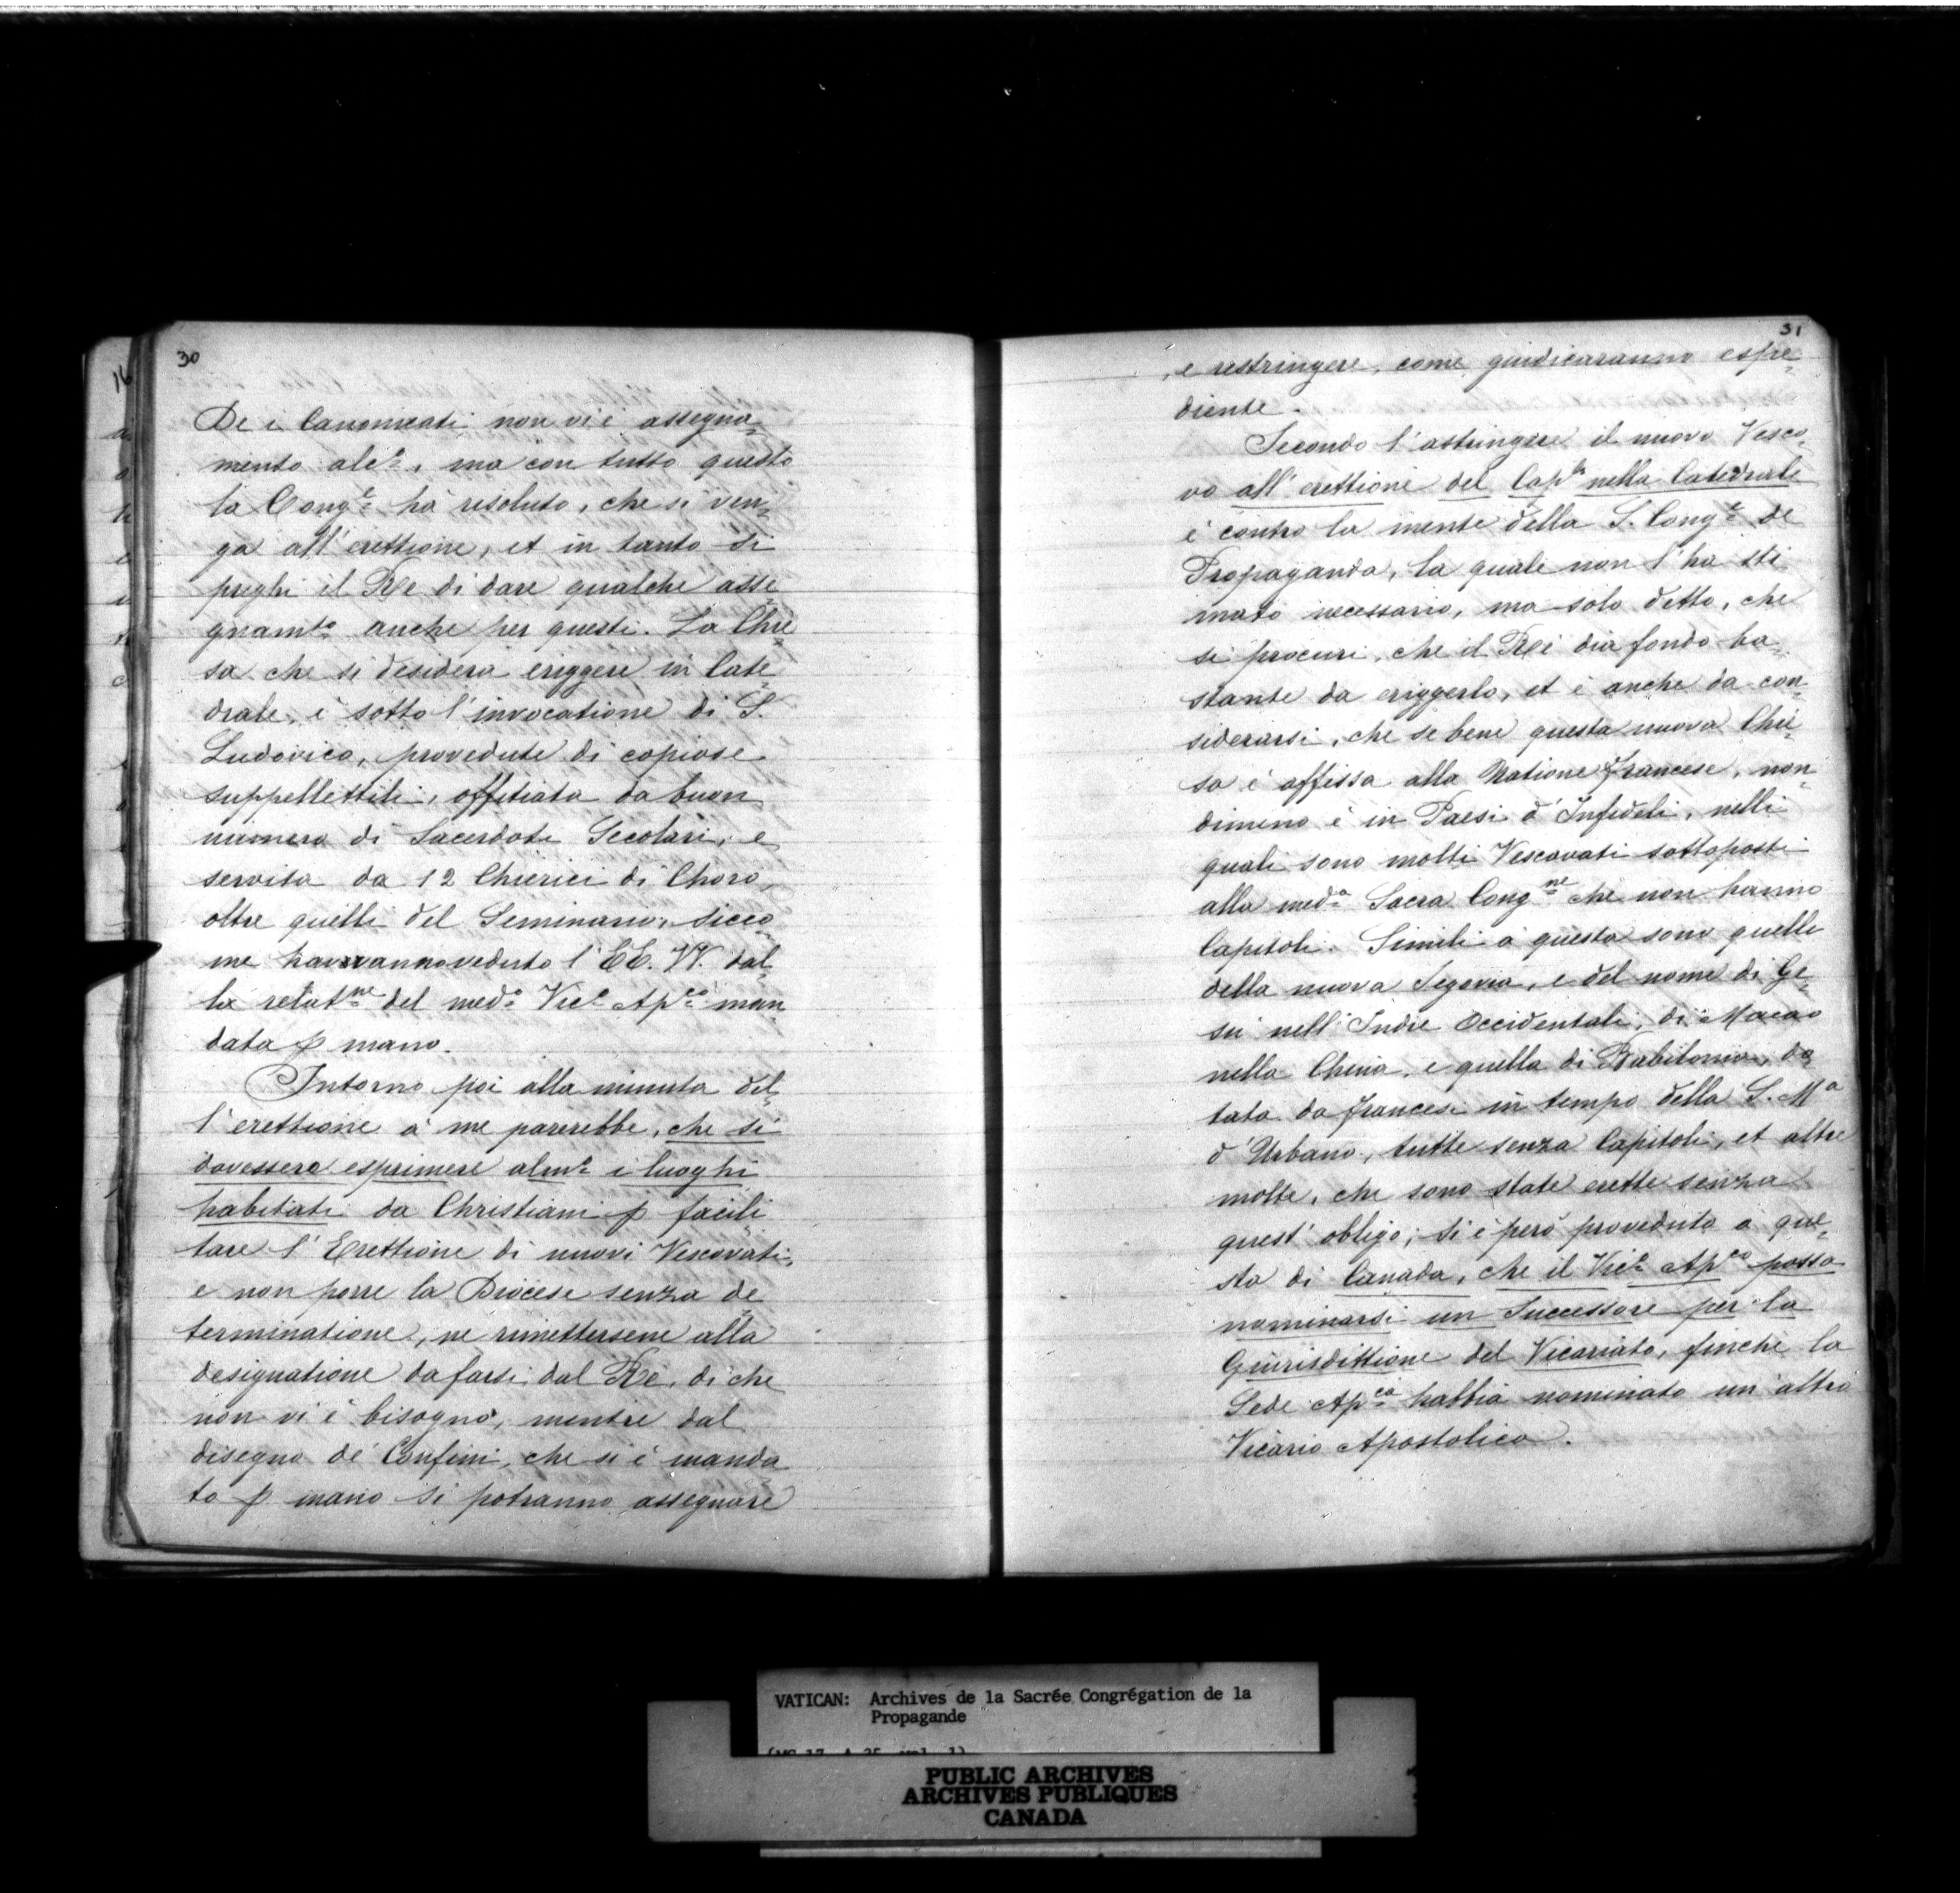 30
De i Canonicati non vi è assegna=
mento alc.º, ma con tutto questo
la Cong.e hà risoluto, che si ven=
ga all'erettione, et in tanto si
preghi il Re di dare qualche asse=
gnam.to anche per questi. La Chie=
sa che si desidera eriggere in Cate=
drale, è sotto l'invocatione di S.
Ludovico, provedute di copiose
suppellettili, offitiata da buon
numero di Sacerdoti Secolari, e
servita da 12 Chierici di Choro,
oltre quelli del Seminario, sicco=
me haveranno veduto l'EE. VV. dal=
la relat.ne del med.º Vic.º Ap.co man=
data p mano.
Intorno poi alla minuta del=
l'erettione à me parerebbe, che si
dovessero esprimere alm.º i luoghi
habitati da Christiani p facili=
tare l'Erettione di nuovi Vescovati,
e non porre la Diocese senza de=
terminatione, ne rimettersene alla
designatione da farsi dal Rè, di che
non vi è bisogno, mentre dal
disegno de' Confini, che si è manda=
to p mano si potranno assegnare
31
, e restringere, come giudicaranno espe=
diente.
Secondo l'astringere il nuovo Vesco=
vo all'erettione del Cap.lo nella Catedrale
è contro la mente della S. Cong.e de
Propaganda, la quale non l'ha sti
mato necessario, ma solo detto, che
si procuri, che il Rèi dia fondo ba=
stante da eriggerlo, et è anche da con=
siderarsi, che se bene questa nuova Chie=
sa è affissa alla Natione francese, non=
dimeno è in Paesi d'Infedeli, nelli
quali sono molti Vescovati sottoposti
alla med.a Sacra Cong.ne che non hanno
Capitoli. Simili à questa sono quelle
della nuova Segovia, e del nome di Ge=
sù nell'Indie Occidentali, di Macao
nella China, e quella di Babilonia, do=
tata da francesi in tempo della S. M.a
d'Urbano, tutte senza Capitoli, et altre
molte, che sono state erette senza
quest'obligo; si è però proveduto à que=
sta di Canada, che il Vic.º Ap.co possa
nominarsi un Successore per la
Giurisdittione del Vicariato, finche la
Sede Ap.ca habbia nominato un'altro
Vicario Apostolico.
VATICAN: Archives de la Sacrée Congrégation de la
Propagande
(MG 17, A 25, vol. 1)
PUBLIC ARCHIVES
ARCHIVES PUBLIQUES
CANADA